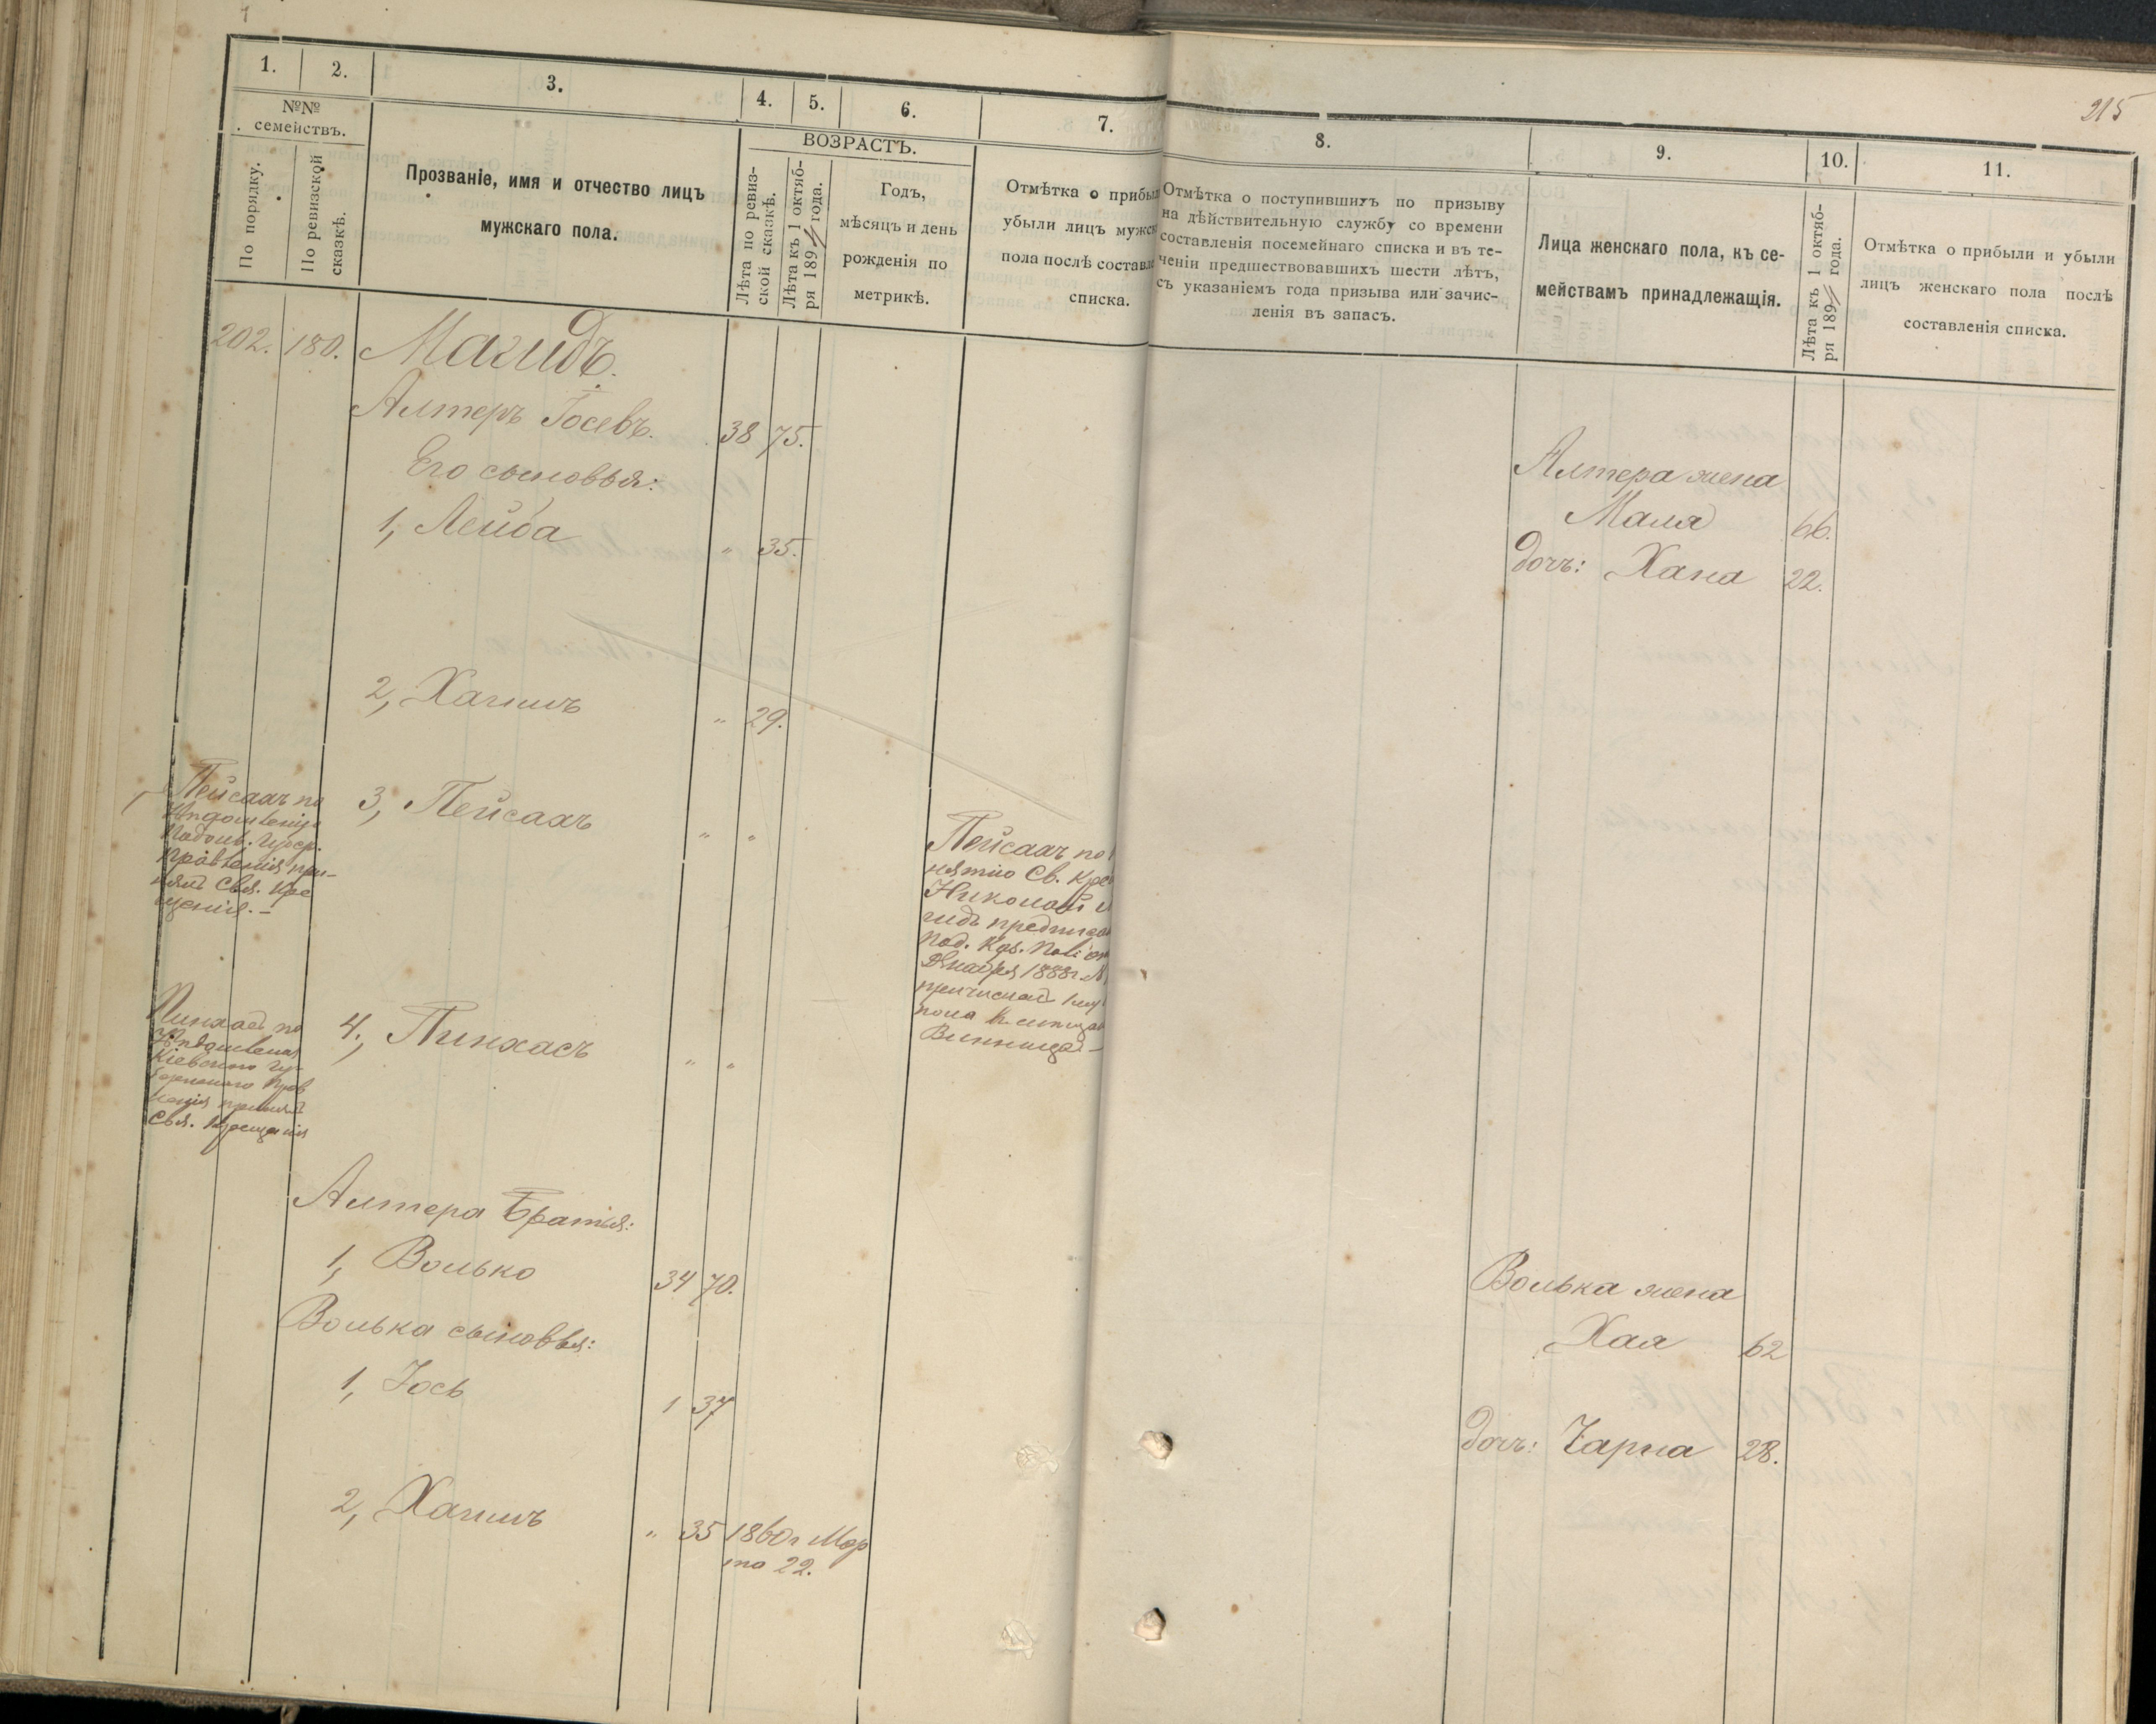 215
1. 2. 3. 4. 5. 6. 7. 8. 9. 10. 11.
№№ семействъ.
По порядку.
По ревизской сказкѣ.
Прозваніе, имя и отчество лицъ
мужскаго пола.
ВОЗРАСТЪ.
Лѣта по ревиз-
ской сказкѣ.
Лѣта къ 1 октяб-
ря 189 года.
Годъ,
мѣсяцъ и день
рожденія по
метрикѣ.
Отмѣтка о прибы
убыли лицъ мужск
пола послѣ составле
списка.
Отмѣтка о поступившихъ по призыву
на дѣйствительную службу со времени
составленія посемейнаго списка и въ те-
ченіи предшествовавшихъ шести лѣтъ,
съ указаніемъ года призыва или зачис-
ленія въ запасъ.
Лица женскаго пола, къ се-
мействамъ принадлежащія.
Лѣта къ 1 октяб-
ря 189 года.
Отмѣтка о прибыли и убыли
лицъ женскаго пола послѣ
составленія списка.
202. 180. Магидъ.
Алтеръ Іосевъ. 38 75.
Его сыновья:
Алтера жена
Маля 66.
1, Лейба " 35.
дочь: Хана 22.
2, Хаимъ " 29.
3, Пейсахъ " "
Пейсахъ по
Увѣдомленію
Подольс. Губер.
Правленія при-
нялъ Свя. Кре
щенія.-
Пейсахъ по
нятію Св. Кре
Николай
гидъ предписа
Под. Каз. Пал.
Января 1888 г. №
причислен
пола
Винница-
4, Пинхасъ " "
Пинхасъ по
Увѣдомленія
Кіевскаго Гу-
бернскаго Прав
ленія принялъ
Свя. Крещенія
Алтера Братья:
1, Волько 34 70.
Волька жена
Хая 62
Волька сыновья:
1, Іось 1 37
дочь: Чарна 28.
2, Хаимъ " 35 1860 г Мар
та 22.